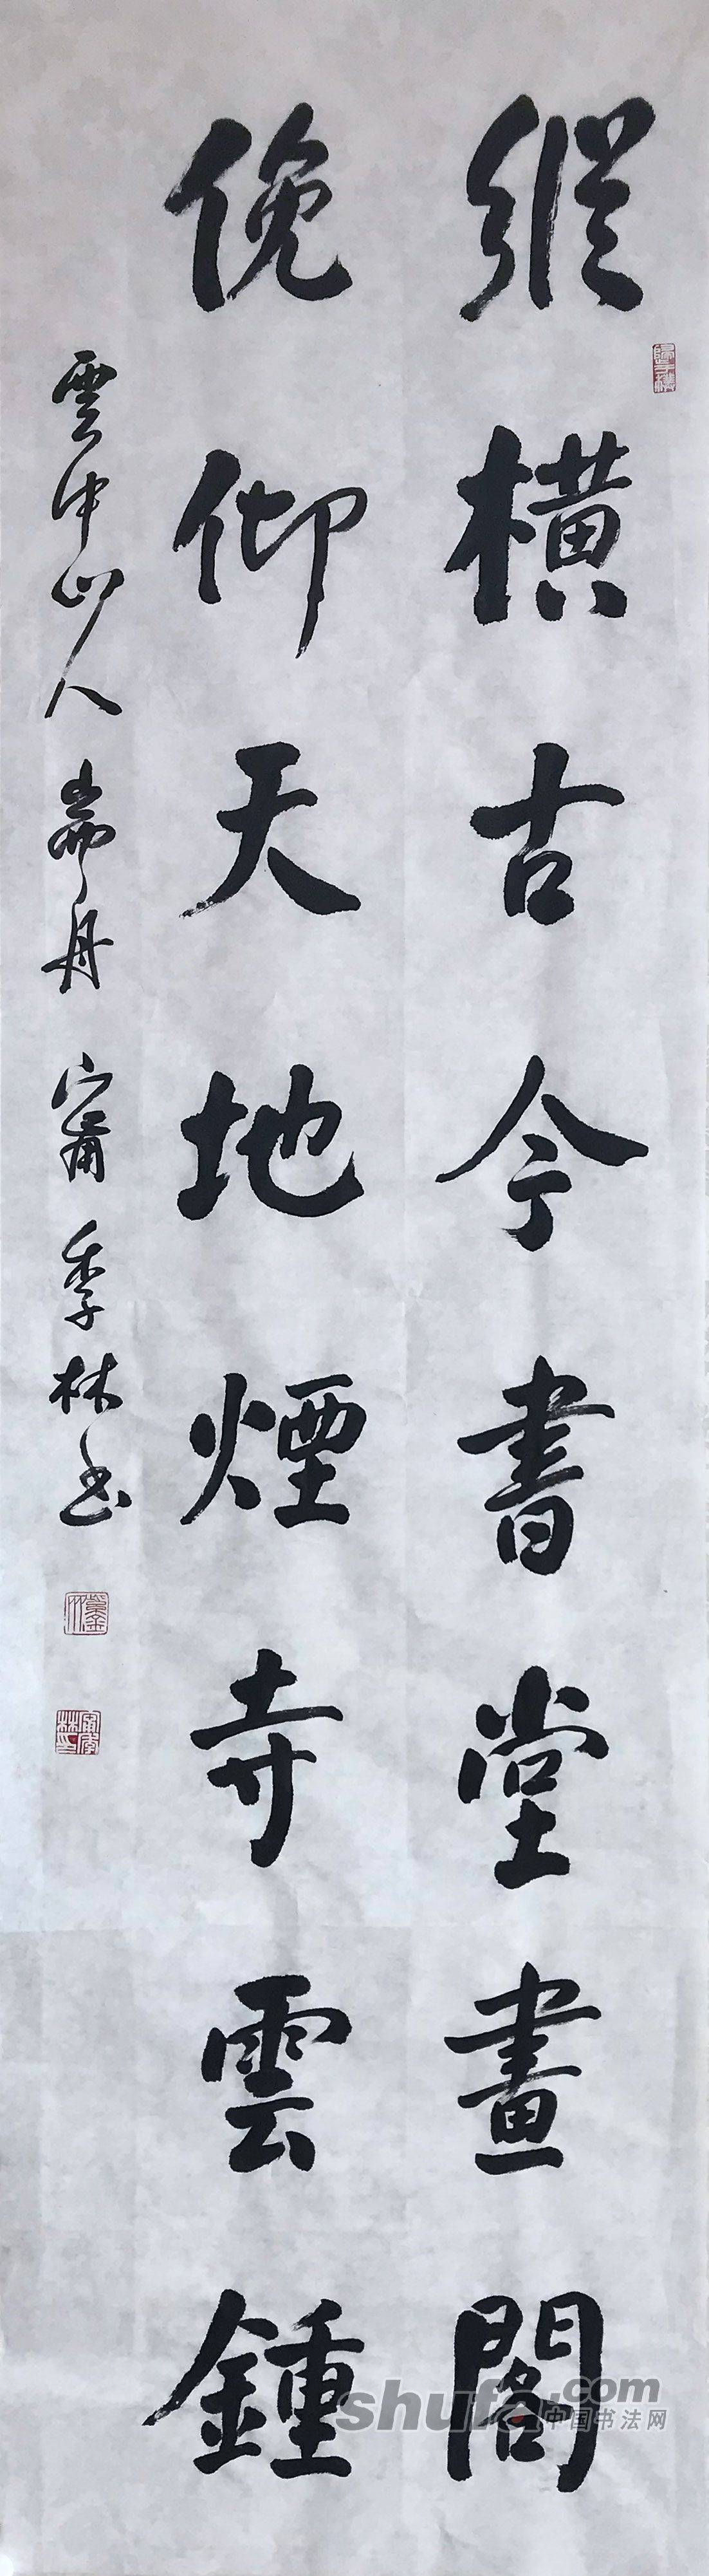 縱橫古今書堂畫閣
俛仰天地煙寺雲鍾
雲中山人 耑丹 甯季林書
shufa.com
中国书法网